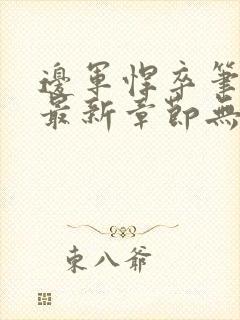 邊軍悍卒筆
最新章節無
東八爺